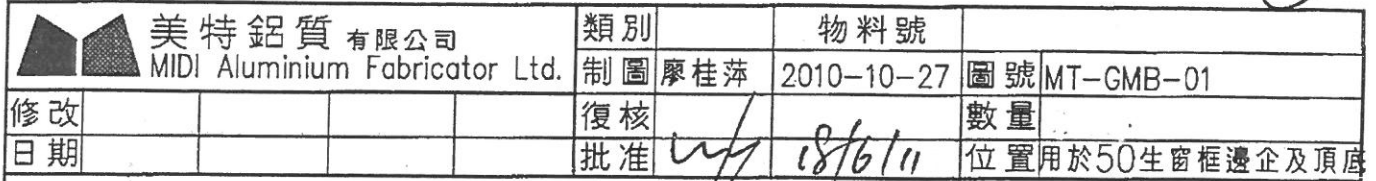 美特鋁質有限公司 類別 物料號
MIDI Aluminium Fabricator Ltd. 制圖 廖桂萍 2010-10-27 圖號 MT-GMB-01
修改 復核 數量
日期 批准 18/6/11 位置 用於50生窗框邊企及頂底